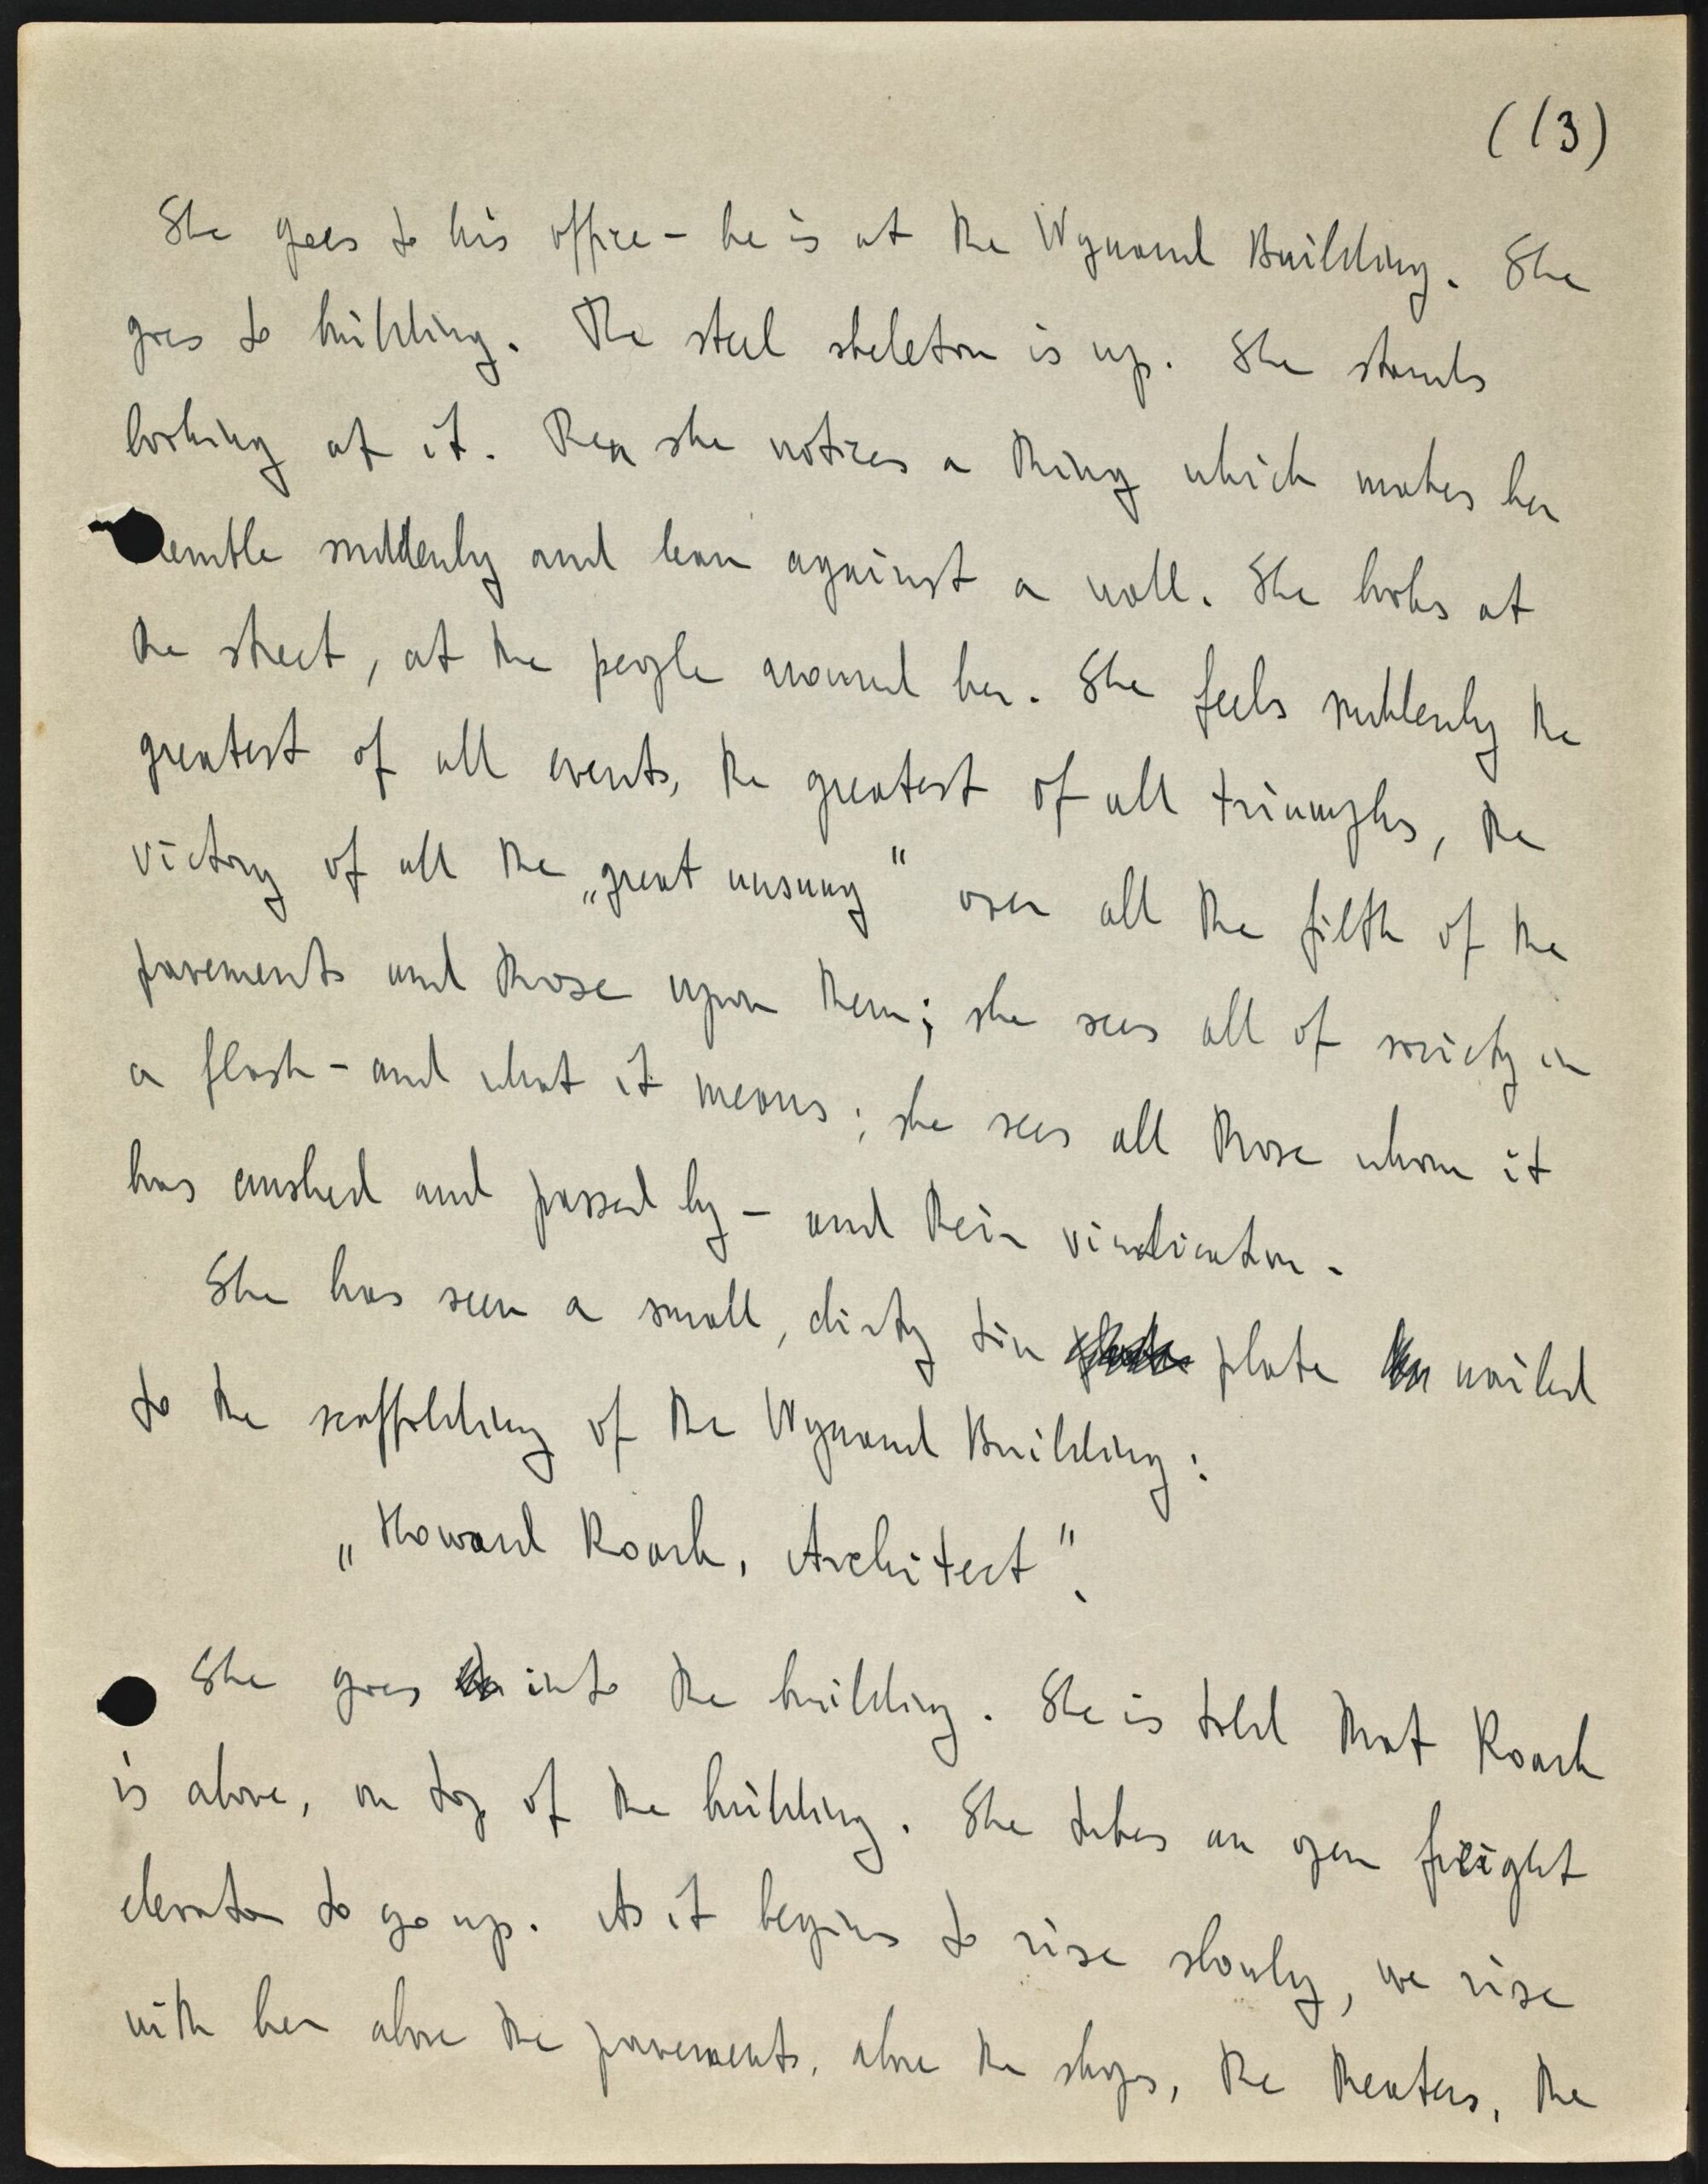 (13)
She goes to his office – he is at the Wynand Building. She
goes to building. The steel skeleton is up. She stands
looking at it. Then she notices a thing which makes her
remble suddenly and lean against a wall. She looks at
the street, at the people around her. She feels suddenly the
greatest of all events, the greatest of all triumphs, the
victory of all the „great unsung" over all the filth of the
pavements and those upon them; she sees all of society in
a flash – and what it means; she sees all those whom it
has crushed and passed by – and their vindication.
She has seen a small, dirty tin plate nailed
to the scaffolding of the Wynand Building:
„Howard Roark, Architect".
She goes into the building. She is told that Roark
is above, on top of the building. She takes an open freight
elevator to go up. As it begins to rise slowly, we rise
with her above the pavements, above the shops, the theaters, the